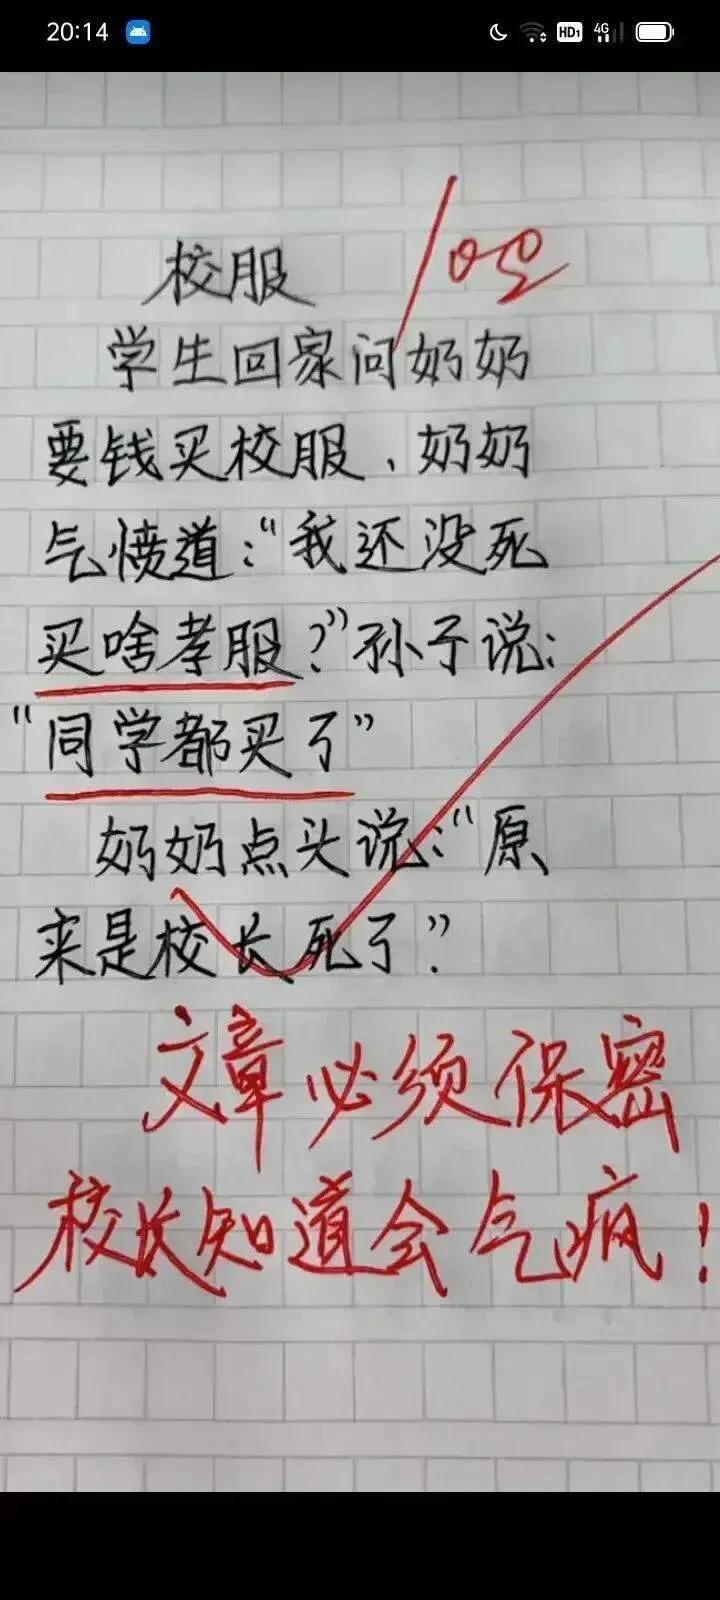 20:14
HD1 4G
校服
100
学生回家问奶奶
要钱买校服、奶奶
气愤道:“我还没死
买啥孝服?”孙子说:
“同学都买了”
奶奶点头说:“原
来是校长死了”?
文章必须保密
校长知道会气疯!